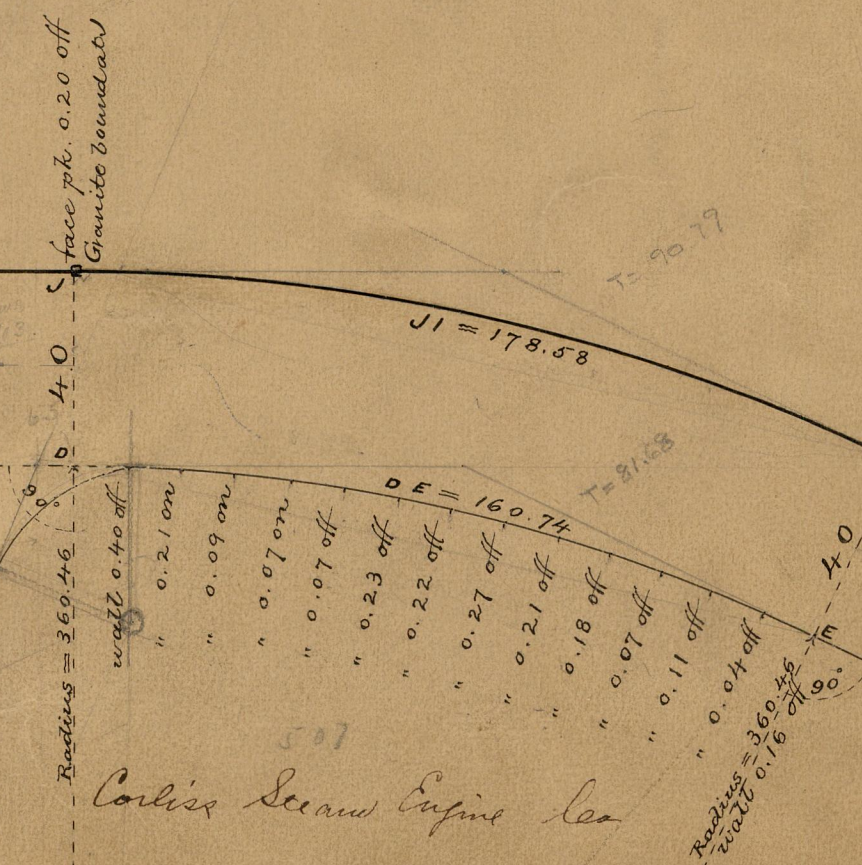 face pk. 0.20 off
Granite boundary
J
T= 90.79
JI = 178.58
40
D
60°
DE = 160.74
T=81.68
40
E
90°
Radius = 360.46
wall 0.40 off
" 0.21 on
" 0.09 on
" 0.07 on
" 0.07 off
" 0.23 off
" 0.22 off
" 0.27 off
" 0.21 off
" 0.18 off
" 0.07 off
" 0.11 off
" 0.04 off
Radius = 360.46
wall 0.16 off
507
Corliss Steam Engine Co